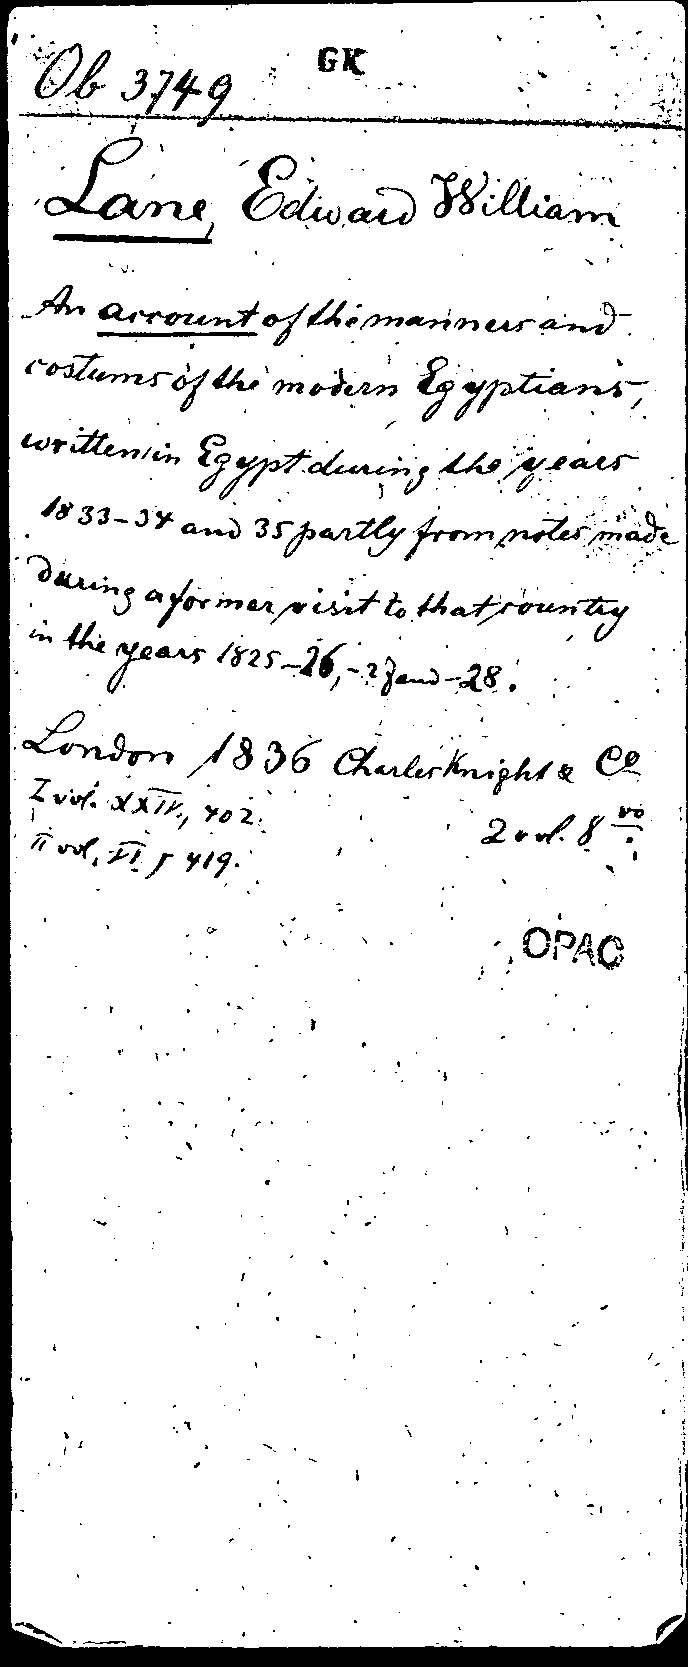 Ob 3749 GK
Lane, Edward William
An account of the manners and
costums of the modern Egyptians,
written in Egypt during the years
1833-34 and 35 partly from notes made
during a former visit to that country
in the years 1825-26, -27 and -28.
London 1836 Charles Knight & Co
I vol. XXIV, 402.
2 vol. 8 vo
II vol, VI, 419.
OPAC